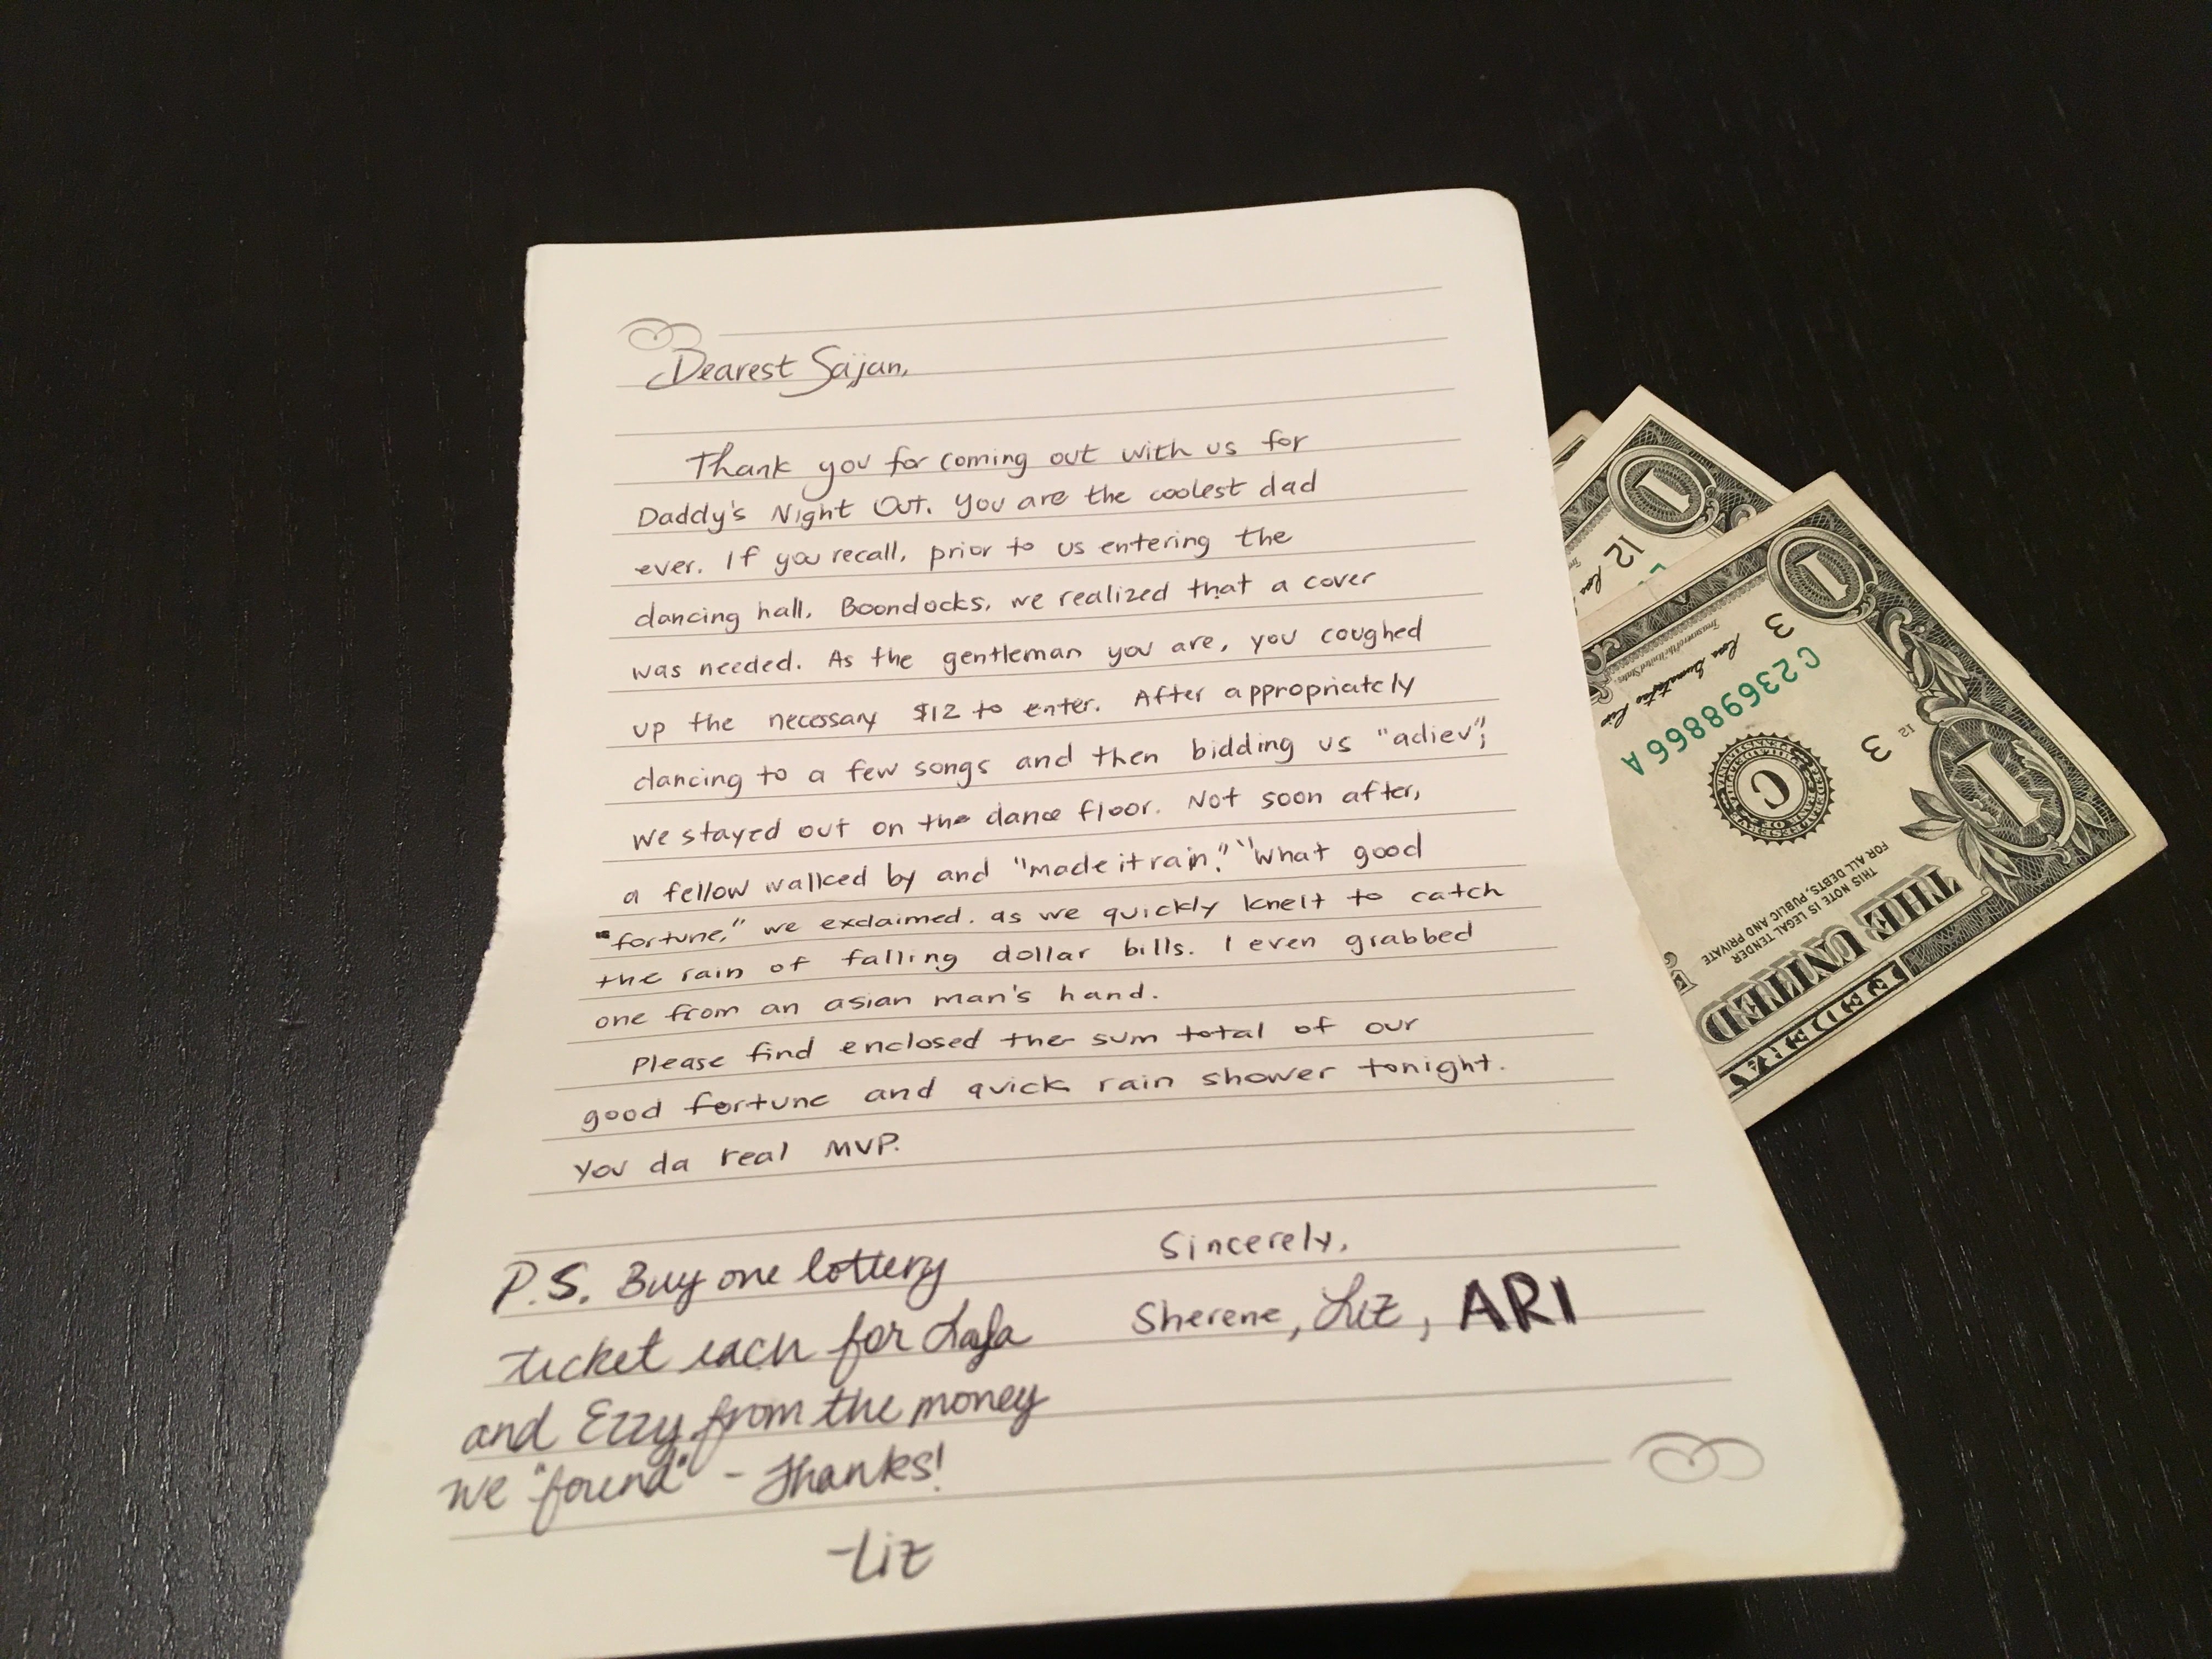 Dearest Sajan,
Thank you for coming out with us for
Daddy's Night Out. You are the coolest dad
ever. If you recall, prior to us entering the
dancing hall, Boondocks, we realized that a cover
was needed. As the gentleman you are, you coughed
up the necessary $12 to enter. After appropriately
dancing to a few songs and then bidding us "adieu",
we stayed out on the dance floor. Not soon after,
a fellow walked by and "made it rain." "What good
"fortune," we exclaimed. as we quickly knelt to catch
the rain of falling dollar bills. I even grabbed
one from an asian man's hand.
Please find enclosed the sum total of our
good fortune and quick rain shower tonight.
You da real MVP.
Sincerely,
Sherene, Liz, ARI
P.S. Buy one lottery
ticket each for Lala
and Ezzy from the money
we "found" - Thanks!
-Liz
1
12
1
3
C23698866A
C
12
3
1
THIS NOTE IS LEGAL TENDER
FOR ALL DEBTS, PUBLIC AND PRIVATE
THE UNITED